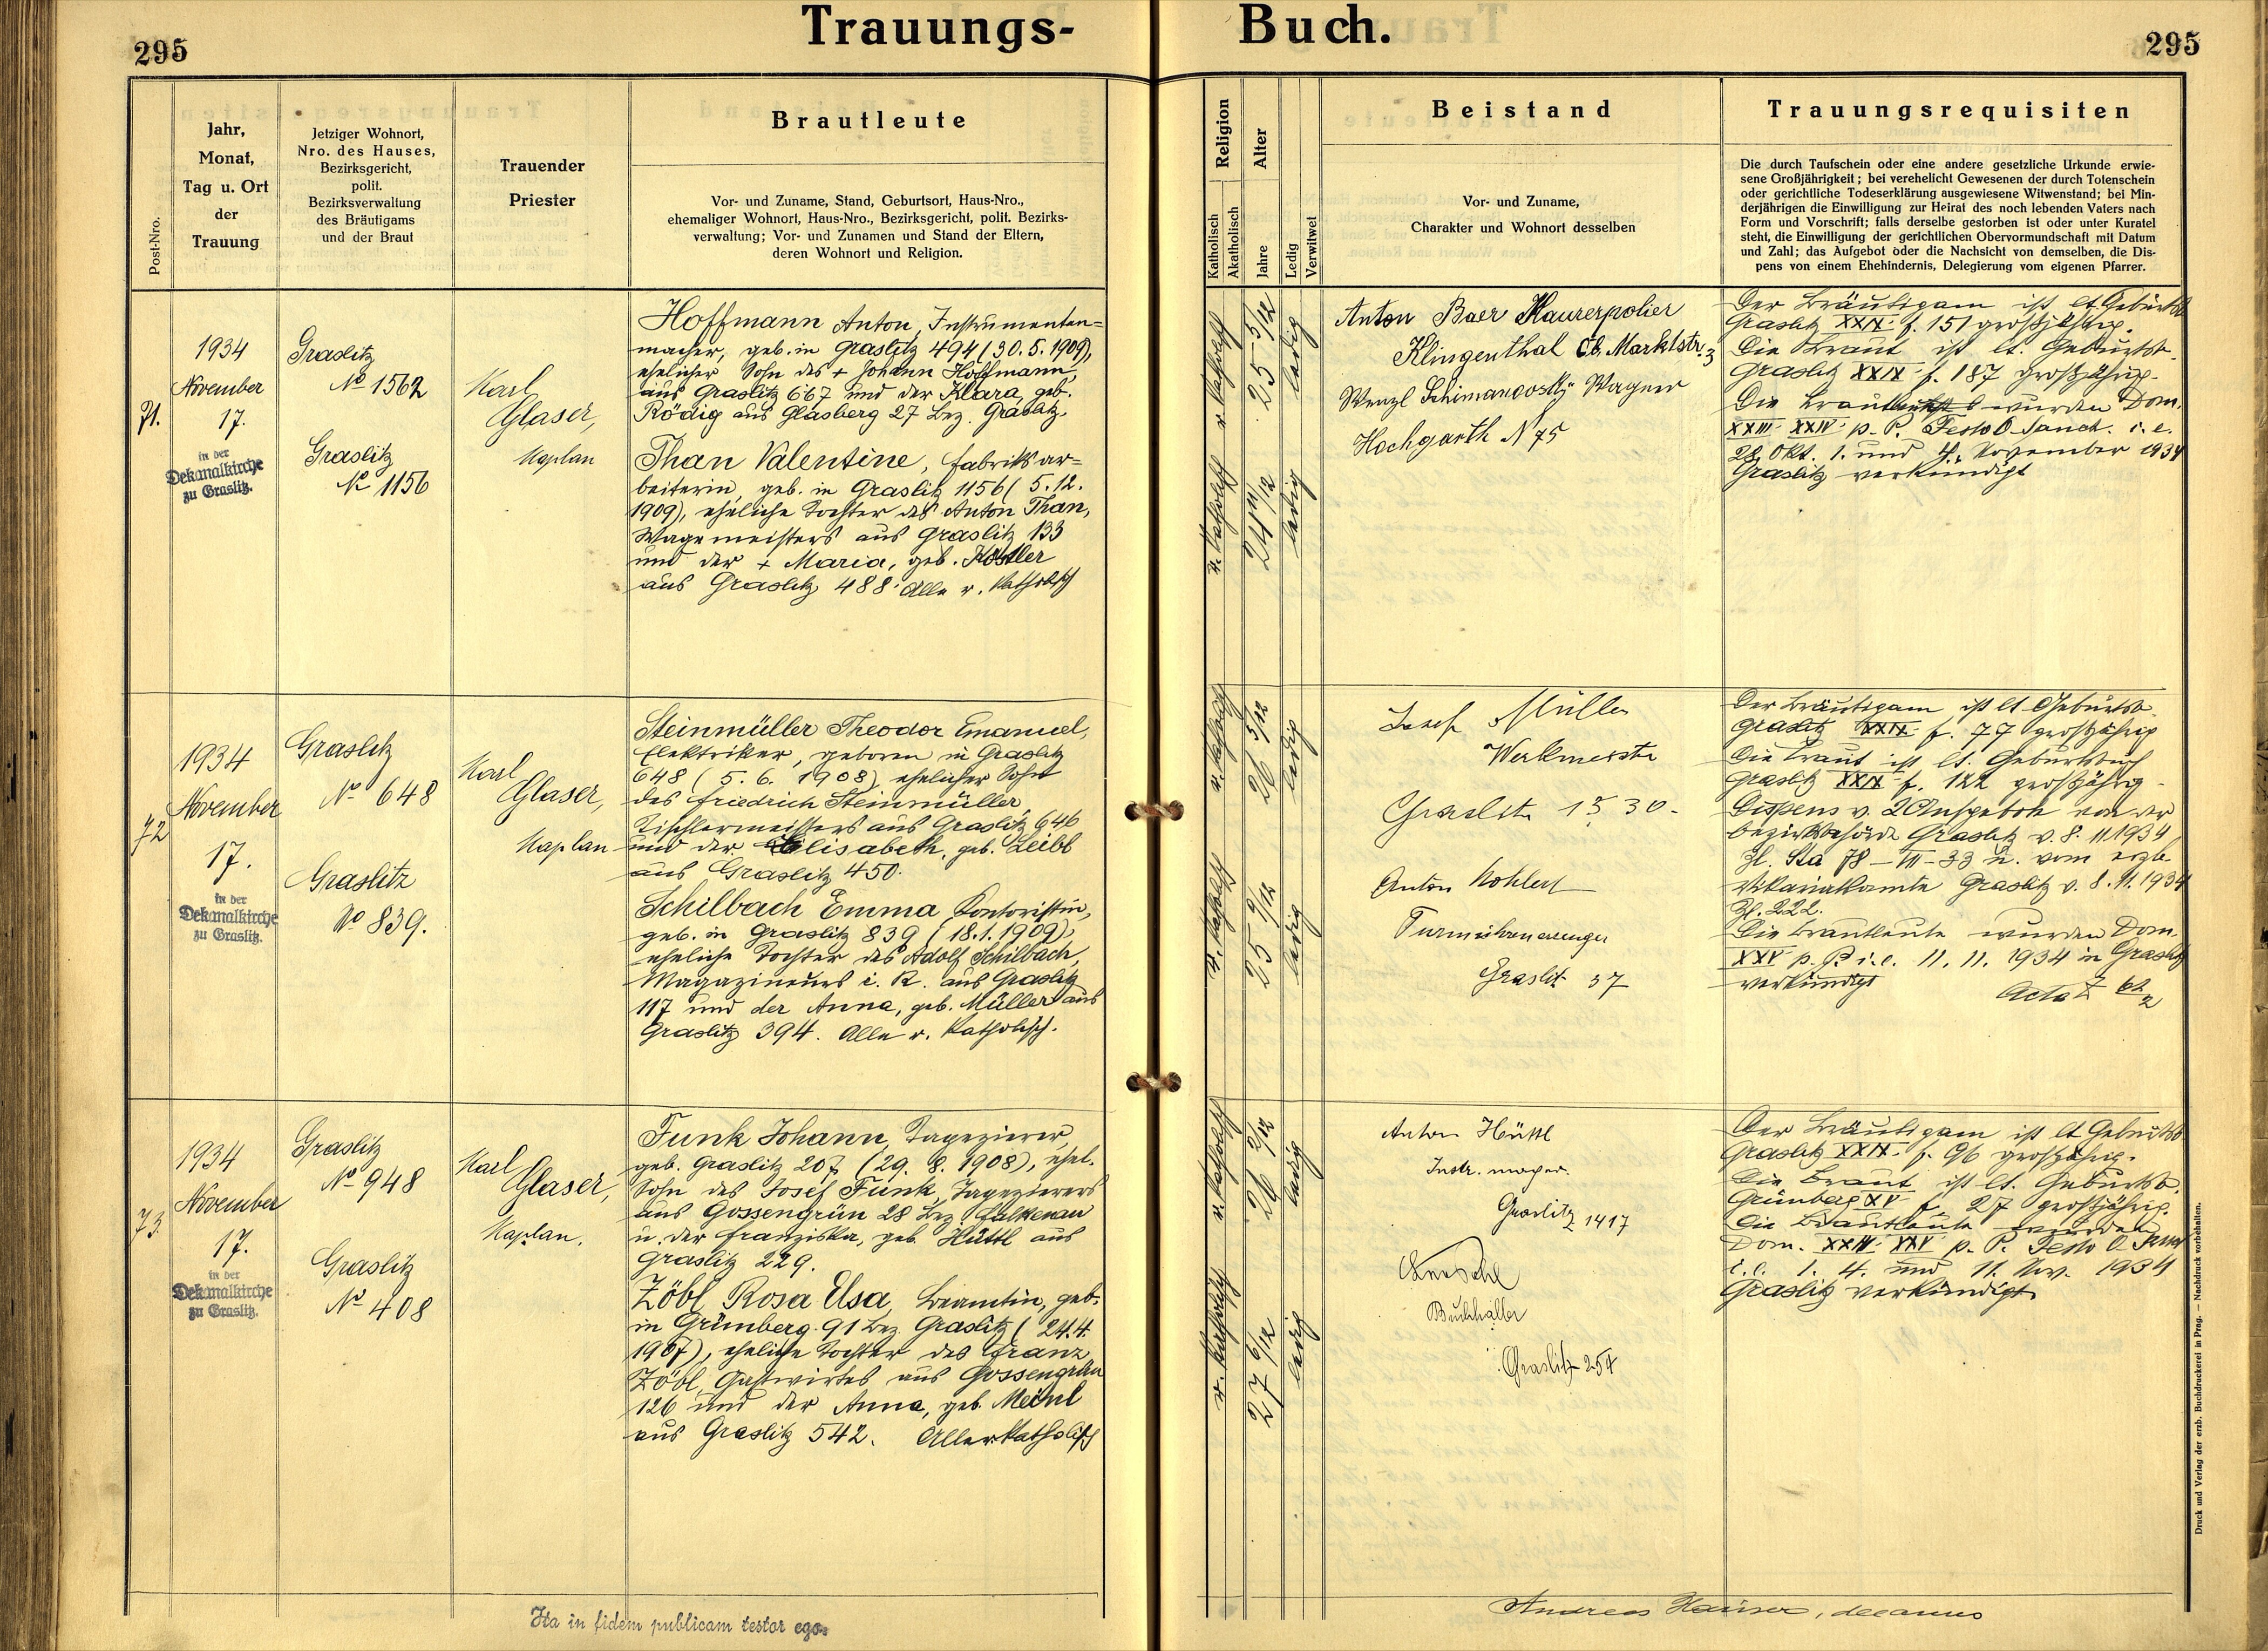 295
Trauungs-
Post-Nro.
Jahr,
Monat,
Tag u. Ort
der
Trauung
Jetziger Wohnort,
Nro. des Hauses,
Bezirksgericht,
polit.
Bezirksverwaltung
des Bräutigams
und der Braut
Trauender
Priester
Brautleute
Vor- und Zuname, Stand, Geburtsort, Haus-Nro.,
ehemaliger Wohnort, Haus-Nro., Bezirksgericht, polit. Bezirks-
verwaltung; Vor- und Zunamen und Stand der Eltern,
deren Wohnort und Religion.
71.
1934
November
17.
in der
Dekanalkirche
zu Graslitz.
Graslitz
No 1562
Graslitz
No 1156
Karl
Glaser,
Kaplan
Hoffmann Anton, Instrumenten=
macher, geb. in Graslitz 494 (30. 5. 1909),
ehelicher Sohn des + Johann Hoffmann,
aus Graslitz 667 und der Klara, geb.
Rödig aus Glasberg 27 Bez. Graslitz.
Than Valentine, Fabriksar=
beiterin, geb. in Graslitz 1156 (5. 12.
1909), eheliche Tochter des Anton Than,
Wagemeisters aus Graslitz 133
und der + Maria, geb. Köstler
aus Graslitz 488. Alle r. katholisch
72
1934
November
17.
in der
Dekanalkirche
zu Graslitz.
Graslitz
No 648
Graslitz
No 839.
Karl
Glaser,
Kaplan
Steinmüller Theodor Emanuel,
Elektriker, geboren in Graslitz
648 (5. 6. 1908) ehelicher Sohn
des Friedrich Steinmüller,
Tischlermeisters aus Graslitz 646
und der Elisabeth, geb. Leibl
aus Graslitz 450.
Schilbach Emma, Kontoristin,
geb. in Graslitz 839 (18. 1. 1909),
eheliche Tochter des Adolf Schilbach,
Magazineurs i. R. aus Graslitz
117 und der Anna, geb. Müller aus
Graslitz 394. Alle r. katholisch.
73.
1934
November
17.
in der
Dekanalkirche
zu Graslitz.
Graslitz
No 948
Graslitz
No 408
Karl
Glaser,
Kaplan.
Funk Johann, Tapezierer,
geb. Graslitz 207 (29. 8. 1908), ehel.
Sohn des Josef Funk, Tapezierers
aus Gossengrün 28 Bez. Falkenau
u. der Franziska, geb. Hüttl aus
Graslitz 229.
Zöbl Rosa Elsa, Beamtin, geb.
in Grünberg 91 Bez. Graslitz (24. 4.
1907), eheliche Tochter des Franz
Zöbl, Gastwirtes aus Gossengrün
126 und der Anna, geb. Meinl
aus Graslitz 542. Alle r. katholisch
Ita in fidem publicam testor ego.
Buch.
295
Religion
Katholisch
Akatholisch
Alter
Jahre
Ledig
Verwitwet
Beistand
Vor- und Zuname,
Charakter und Wohnort desselben
Trauungsrequisiten
Die durch Taufschein oder eine andere gesetzliche Urkunde erwie-
sene Großjährigkeit; bei verehelicht Gewesenen der durch Totenschein
oder gerichtliche Todeserklärung ausgewiesene Witwenstand; bei Min-
derjährigen die Einwilligung zur Heirat des noch lebenden Vaters nach
Form und Vorschrift; falls derselbe gestorben ist oder unter Kuratel
steht, die Einwilligung der gerichtlichen Obervormundschaft mit Datum
und Zahl; das Aufgebot oder die Nachsicht von demselben, die Dis-
pens von einem Ehehindernis, Delegierung vom eigenen Pfarrer.
r. katholisch
25 5/12
ledig
r. katholisch
24 11/12
ledig
Anton Baer Maurerpolier
Klingenthal Ob. Marktstr. 3
Wenzl Schimanovský Wagner
Hochgarth N 75
Der Bräutigam ist lt. Geburtsb.
Graslitz XXIX f. 151 großjährig.
Die Braut ist lt. Geburtsb.
Graslitz XXIX f. 187 großjährig.
Die Brautleute wurden Dom.
XXIII XXIV p. P. Festo O. Sanct. i. e.
28. Okt. 1. und 4. November 1934
Graslitz verkündigt
r. katholisch
26 5/12
ledig
r. katholisch
25 9/12
ledig
Josef Müller
Werkmeister
Graslitz 1530.
Anton Kohlert
Turmuhrenerzeuger
Graslitz 37
Der Bräutigam ist lt. Geburtsb.
Graslitz XXIX f. 77 großjährig
Die Braut ist lt. Geburtsbuch
Graslitz XXIX f. 122 großjährig.
Dispens v. 2 Aufgeboten von der
Bezirksbehörde Graslitz v. 8. 11. 1934
Zl. Sta 78-VII-33 u. vom erzb.
Vikariatsamte Graslitz v. 8. 11. 1934
Zl. 222.
Die Brautleute wurden Dom.
XXV p. P. i. e. 11. 11. 1934 in Graslitz
verkündigt
Acta
r. katholisch
26 2/12
ledig
r. katholisch
27 6/12
ledig
Anton Hüttl
Instr. macher.
Graslitz 1417
Buchhalter
Graslitz 254
Der Bräutigam ist lt. Geburtsb.
Graslitz XXIX f. 96 großjährig.
Die Braut ist lt. Geburtsb.
Grünberg XV f. 27 großjährig.
Die Brautleute wurden
Dom. XXIV XXV p. P. Festo O. Sanct
i. e. 1. 4. und 11. Nov. 1934
Graslitz verkündigt.
Andreas Hauser, decanus
Druck und Verlag der erzb. Buchdruckerei in Prag. — Nachdruck vorbehalten.